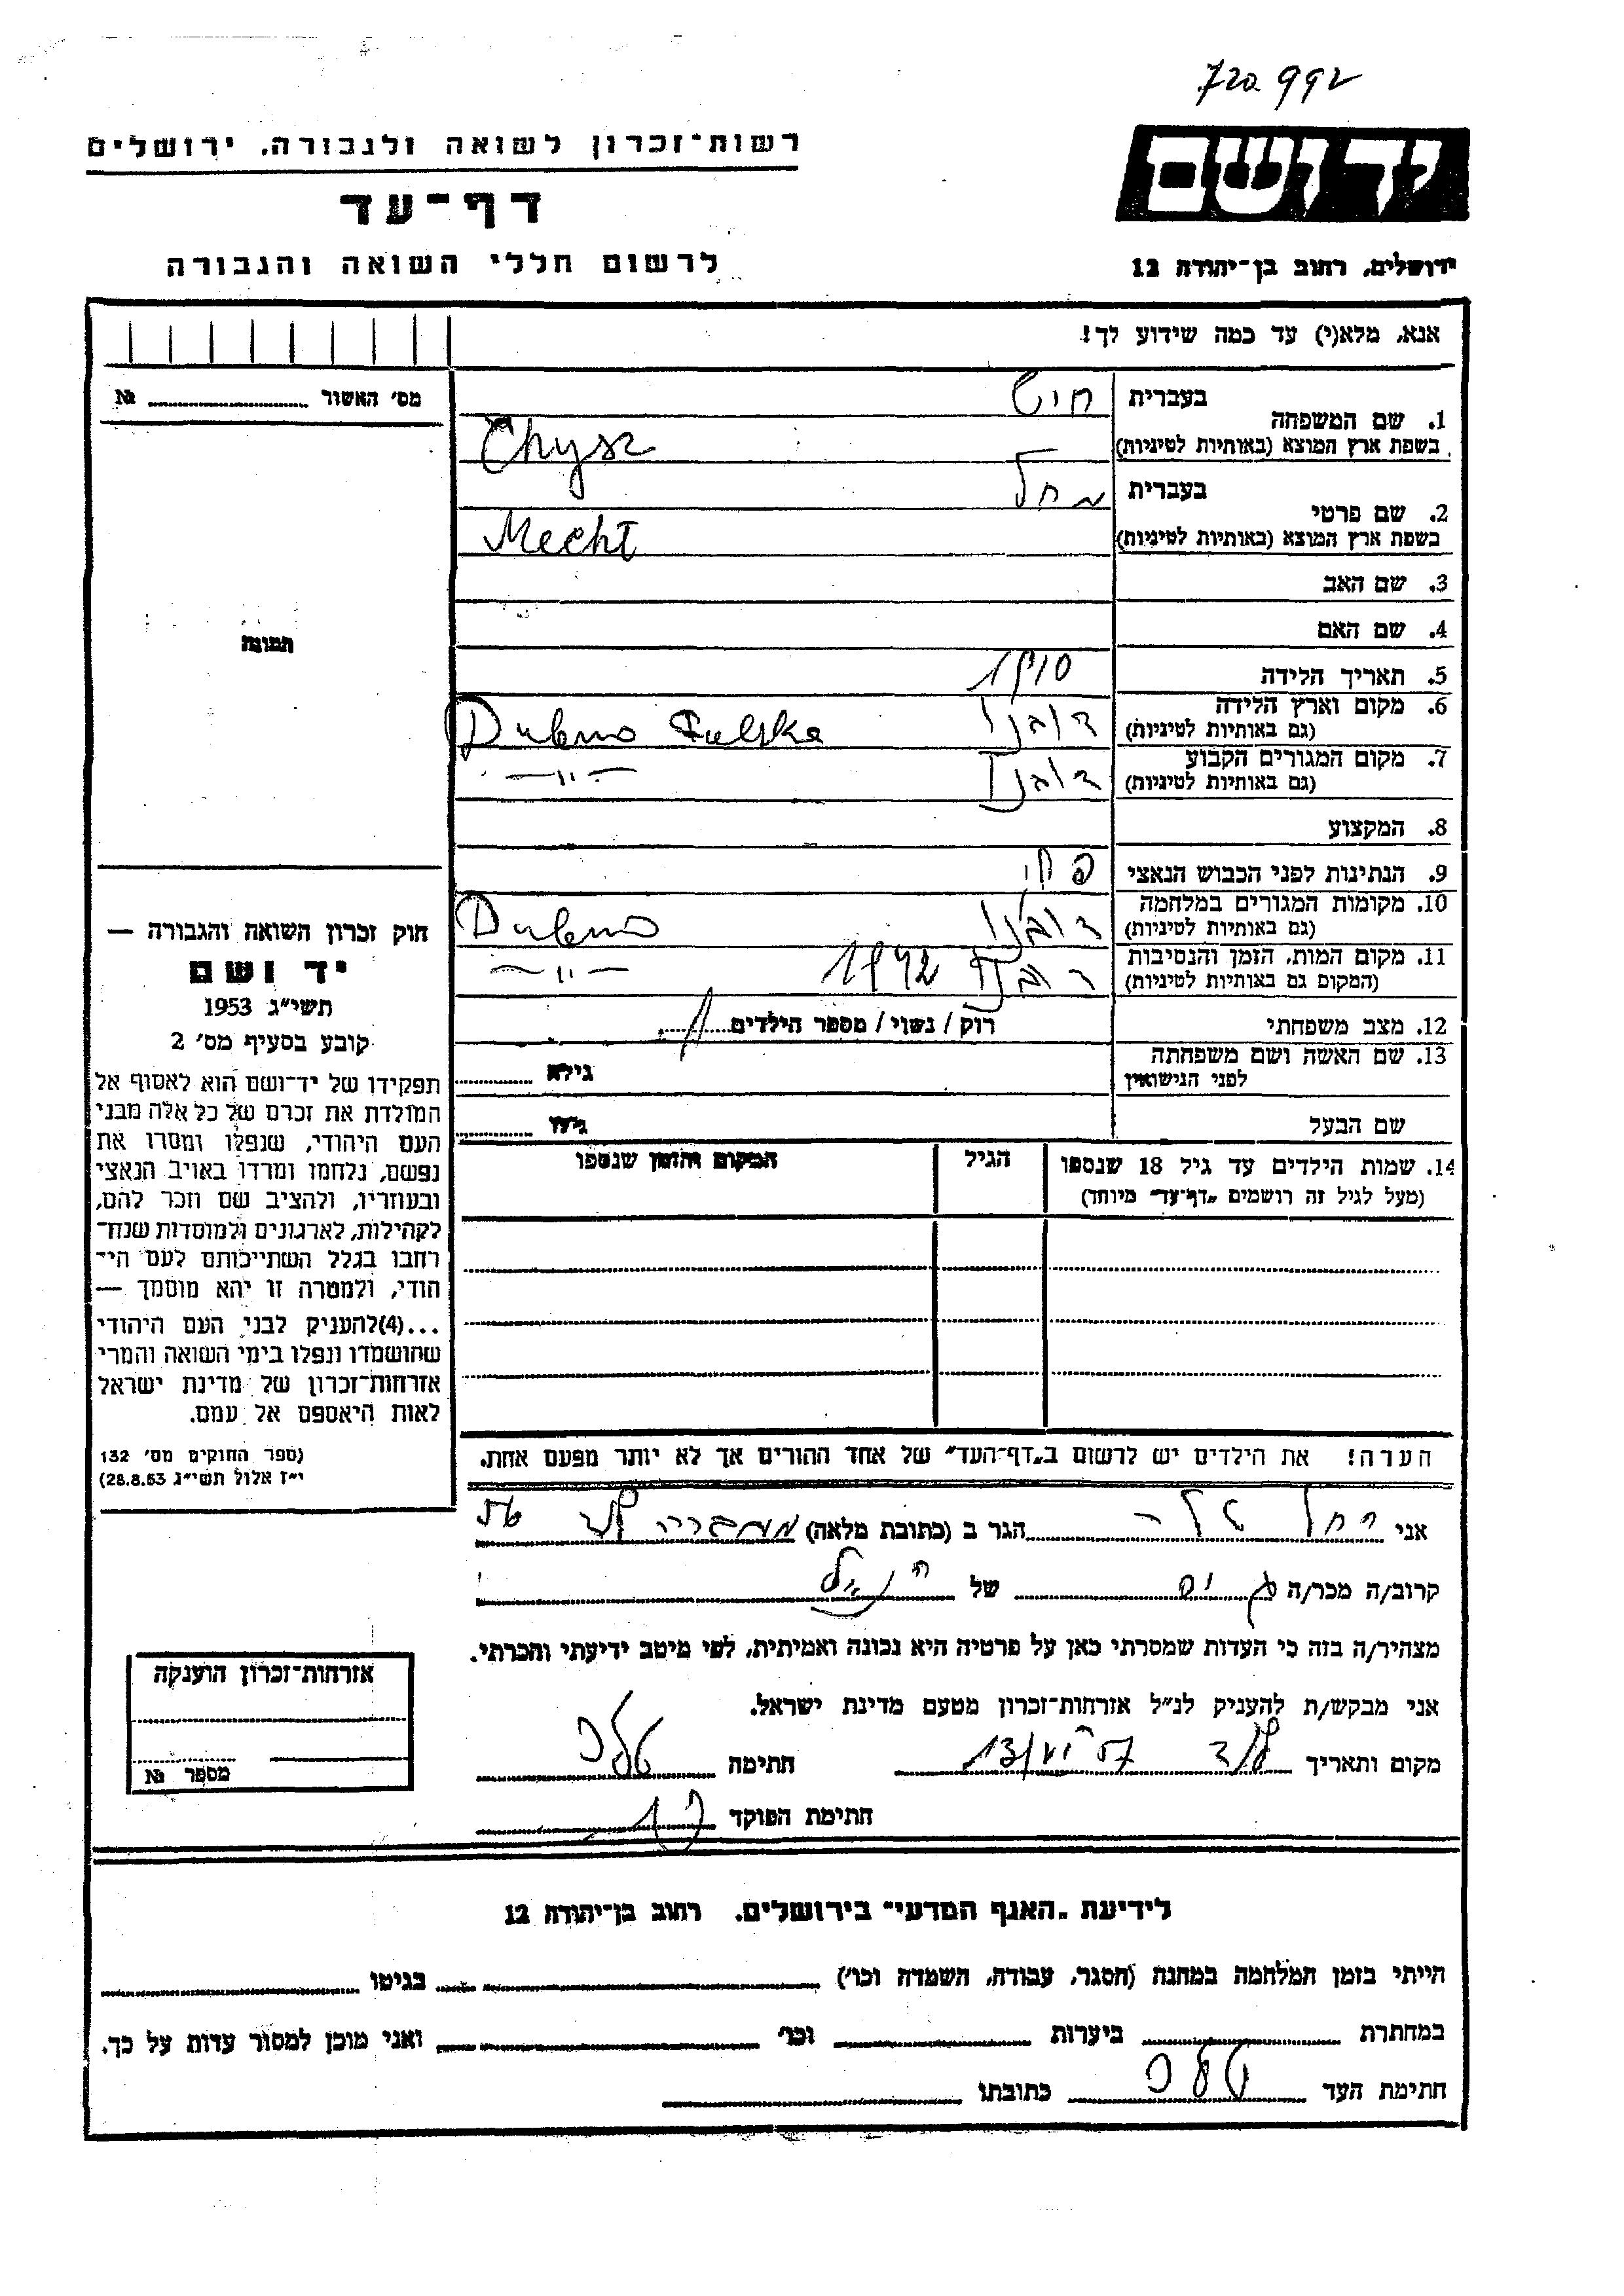 720.992
רשות־זכרון לשואה ולגבורה, ירושלים
ידושם
דף־עד
לרשום חללי השואה והגבורה
ירושלים, רחוב בן־יהודה 12
אנא, מלא(י) עד כמה שידוע לך!
מס׳ האשור № 
1. שם המשפחה
בעברית
חיש
בשפת ארץ המוצא (באותיות לטיניות)
Chysz
2. שם פרטי
בעברית
מחל
בשפת ארץ המוצא (באותיות לטיניות)
Mechl
3. שם האב
4. שם האם
תמונה
5. תאריך הלידה 1910
6. מקום וארץ הלידה דובנו Dubno
(גם באותיות לטיניות)
7. מקום המגורים הקבוע דובנו —״—
(גם באותיות לטיניות)
8. המקצוע
9. הנתינות לפני הכבוש הנאצי
10. מקומות המגורים במלחמה דובנו Dubno
(גם באותיות לטיניות)
11. מקום המות, הזמן והנסיבות דובנו 1942 —״—
(המקום גם באותיות לטיניות)
12. מצב משפחתי רוק / נשוי / מספר הילדים
13. שם האשה ושם משפחתה
לפני הנישואין
גילה
שם הבעל
גילו
14. שמות הילדים עד גיל 18 שנספו
(מעל לגיל זה רושמים „דף־עד״ מיוחד)
הגיל
המקום והזמן שנספו
חוק זכרון השואה והגבורה —
יד ושם
תשי״ג 1953
קובע בסעיף מס׳ 2
תפקידו של יד־ושם הוא לאסוף אל
המולדת את זכרם של כל אלה מבני
העם היהודי, שנפלו ומסרו את
נפשם, נלחמו ומרדו באויב הנאצי
ובעוזריו, ולהציב שם וזכר להם,
לקהילות, לארגונים ולמוסדות שנח־
רחבו בגלל השתייכותם לעם הי־
הודי, ולמטרה זו יהא מוסמך —
...(4)להעניק לבני העם היהודי
שהושמדו ונפלו בימי השואה והמרי
אזרחות־זכרון של מדינת ישראל
לאות היאספם אל עמם.
(ספר החוקים מס׳ 132
י״ז אלול תשי״ג 28.8.53)
הערה! את הילדים יש לרשום ב„דף־העד״ של אחד ההורים אך לא יותר מפעם אחת.
אני רחל הגר ב (כתובת מלאה)
קרוב/ה מכר/ה גיס של הנ״ל
מצהיר/ה בזה כי העדות שמסרתי כאן על פרטיה היא נכונה ואמיתית, לפי מיטב ידיעתי והכרתי.
אני מבקש/ת להעניק לנ״ל אזרחות־זכרון מטעם מדינת ישראל.
מקום ותאריך לוד חתימה
חתימת הפוקד
אזרחות־זכרון הוענקה
מספר №
לידיעת „האגף המדעי״ בירושלים, רחוב בן־יהודה 12
הייתי בזמן המלחמה במחנה (הסגר, עבודה, השמדה וכו׳) בגיטו
במחתרת ביערות וכו׳ ואני מוכן למסור עדות על כך.
חתימת העד כתובתו